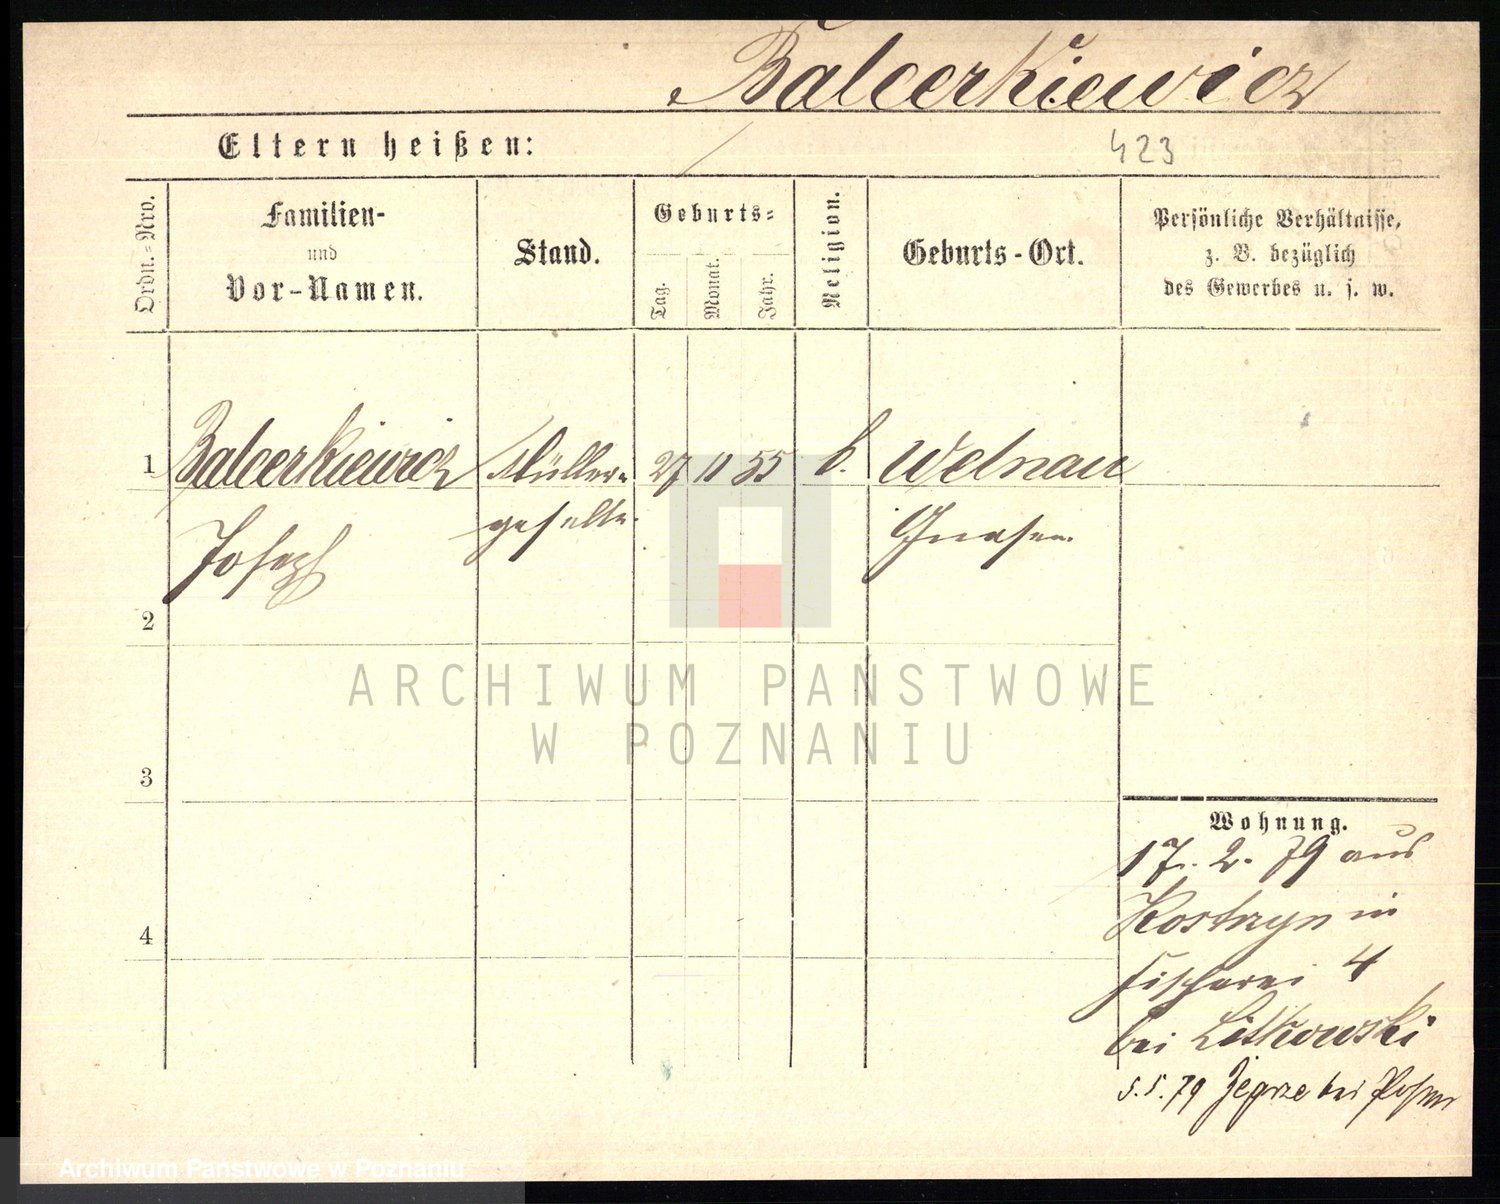 Balcerkiewicz
Eltern heißen:
423
Ordn.-Nro.
Familien-
und
Vor-Namen.
Stand.
Geburts-
Tag.
Monat.
Jahr.
Religion.
Geburts-Ort.
Persönliche Verhältnisse,
z. B. bezüglich
des Gewerbes u. s. w.
1 Balcerkiewicz Müller- 27 11 55 k. Welnau
Joseph geselle. Gnesen
2
3
4
Wohnung.
17. 2. 79 aus
Kostrzyn in
Fischerei 4
bei Litkowski
5.5.79 Zegrze bei Posen
ARCHIWUM PAŃSTWOWE
W POZNANIU
Archiwum Państwowe w Poznaniu